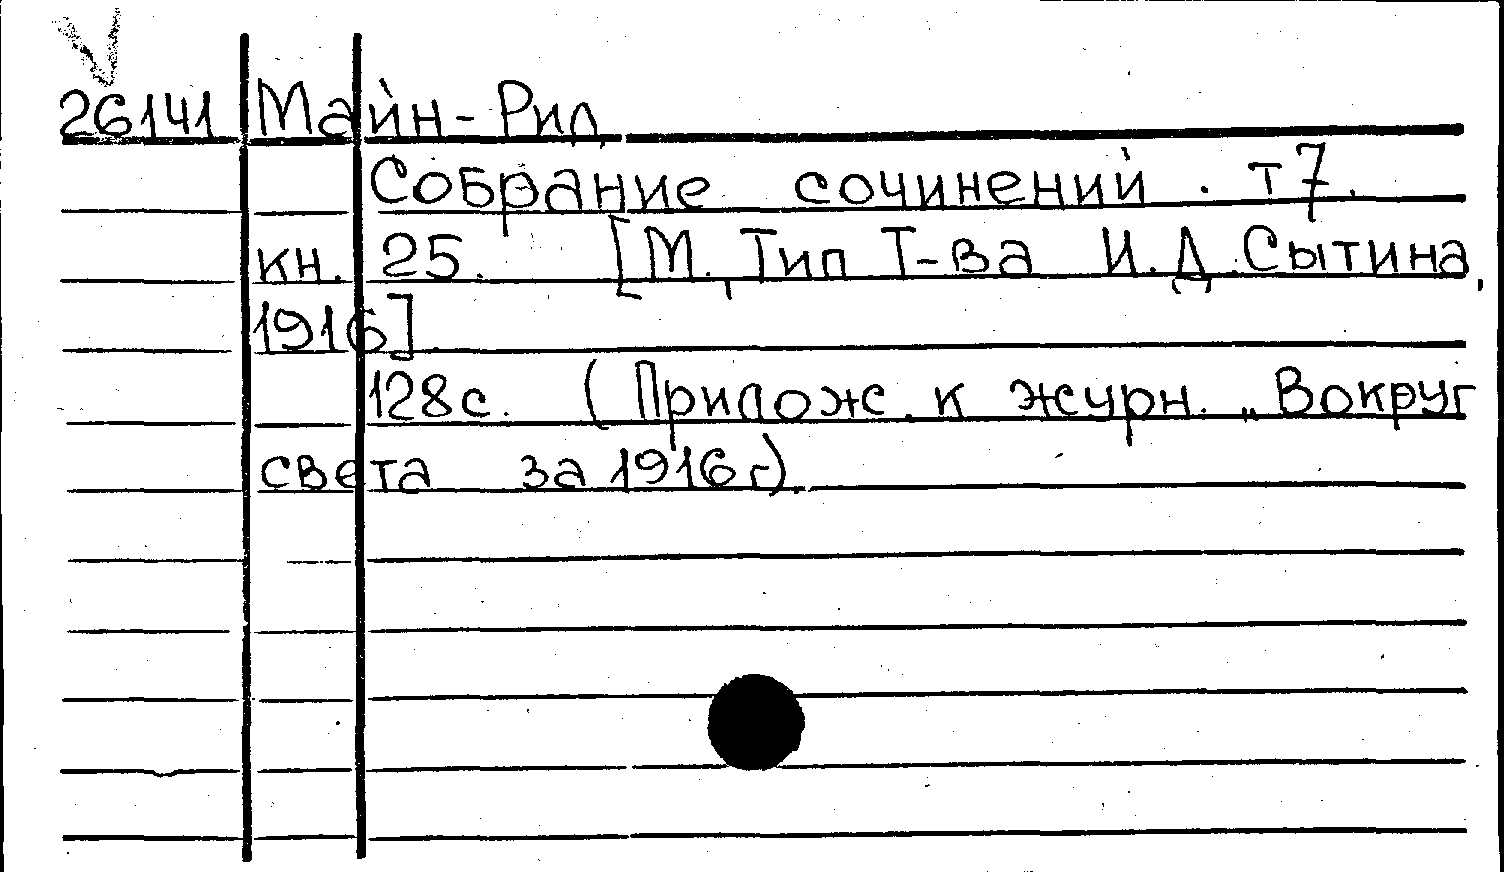 26141 Майн-Рид
Собрание сочинений. т 7.
кн. 25. [М., Тип Т-ва И.Д.Сытина,
1916]
128с. (Прилож. к журн. „Вокруг
света за 1916г).